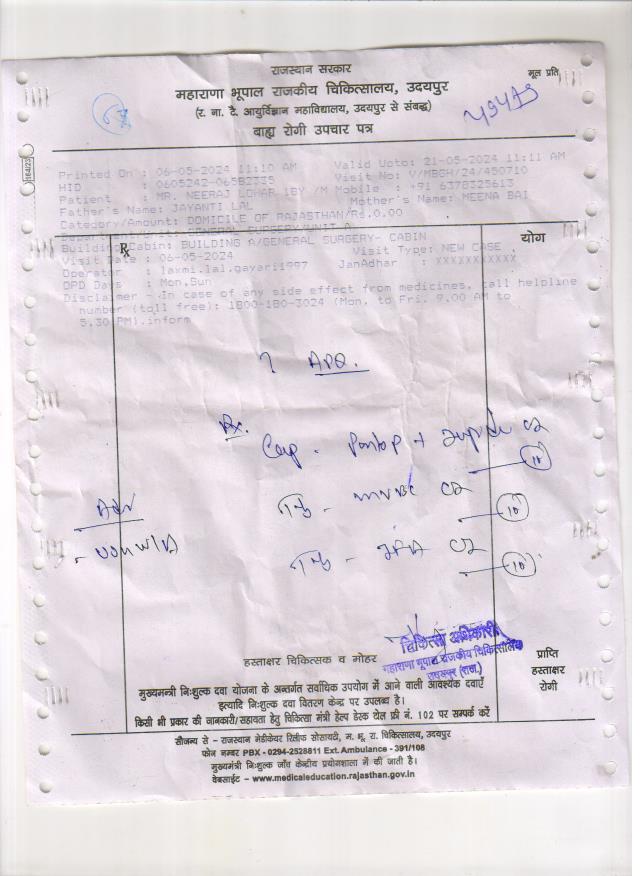 राजस्थान सरकार
मूल प्रति
महाराणा भूपाल राजकीय चिकित्सालय, उदयपुर
(र. ना. टै. आयुर्विज्ञान महाविद्यालय, उदयपुर से संबद्ध)
बाह्य रोगी उपचार पत्र
Printed On : 06-05-2024 11:10 AM Valid Upto: 21-05-2024 11:11 AM
HID : Visit No: V/MBGH/24/450710
Patient : MR. NEERAJ LOHAR 18Y /M Mobile : +91 6378325613
Father's Name: JAYANTI LAL Mother's Name: MEENA BAI
Category/Amount: DOMICILE OF RAJASTHAN/Rs.0.00
GENERAL SURGERY/UNIT A
Building/Cabin: BUILDING A/GENERAL SURGERY- CABIN
Rx योग
Visit Date : 06-05-2024 Visit Type: NEW CASE
Operator : laxmi.lal.gayari1997 JanAdhar : XXXXXXXXXXX
OPD Days : Mon,Sun
Disclaimer - .In case of any side effect from medicines, call helpline
number (toll free): 1800-180-3024 (Mon. to Fri. 9.00 AM to
5.30 PM).inform
Rx.
Cap. Pantop +
10
Adv
Tab - MVBC
10
Tab -
10
चिकित्सा अधिकारी
महाराणा भूपाल राजकीय चिकित्सालय
उदयपुर (राज.)
हस्ताक्षर चिकित्सक व मोहर
प्राप्ति
हस्ताक्षर
रोगी
मुख्यमन्त्री निःशुल्क दवा योजना के अन्तर्गत सर्वाधिक उपयोग में आने वाली आवश्यक दवाएँ
इत्यादि निःशुल्क दवा वितरण केन्द्र पर उपलब्ध है।
किसी भी प्रकार की जानकारी/सहायता हेतु चिकित्सा मंत्री हेल्प डेस्क टोल फ्री नं. 102 पर सम्पर्क करें
सौजन्य से - राजस्थान मेडीकेयर रिलीफ सोसायटी, म. भू. रा. चिकित्सालय, उदयपुर
फोन नम्बर PBX - 0294-2528811 Ext. Ambulance - 391/108
मुख्यमंत्री निःशुल्क जाँच केन्द्रीय प्रयोगशाला में की जाती है।
वेबसाईट - www.medicaleducation.rajasthan.gov.in